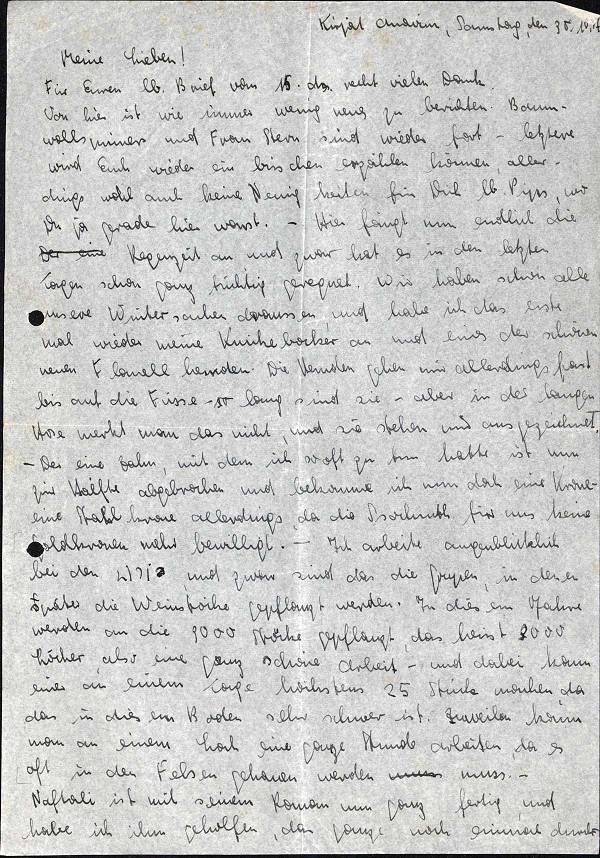 Kirjat Anavim, Samstag, den 30. 10.
Meine Lieben!
Für Euren lb. Brief vom 15. ds. recht vielen Dank.
Von hier ist wie immer wenig neues zu berichten. Baum-
wollspinners und Frau Stern sind wieder fort - letztere
wird Euch wieder ein bischen erzählen können, aller-
dings wohl auch keine Neuigkeiten für Dich lb. Pips, wo
Du ja gerade hier warst. - Hier fängt nun endlich die
Der eine Regenzeit an und zwar hat es in den letzten
Tagen schon ganz tüchtig geregnet. Wir haben schon alle
unsere Wintersachen draussen, und habe ich das erste
mal wieder meine Knickebocker an und eines der schönen
neuen Flanell hemden. Die Hemden gehen mir allerdings fast
bis auf die Füsse - so lang sind sie - aber in der langen
Hose merkt man das nicht, und sie stehen uns ausgezeichnet.
- Der eine Zahn, mit dem ich so oft zu tun hatte ist nun
zur Hälfte abgebrochen und bekomme ich nun doch eine Krone -
eine Stahlkrone allerdings da die für uns keine
Goldkronen mehr bewilligt. - Ich arbeite augenblicklich
bei den und zwar sind das die Gruben, in denen
später die Weinstöcke gepflanzt werden. In diesem Jahre
werden an die 9000 Stöcke gepflanzt, das heisst 9000
Löcher, also eine ganz schöne Arbeit - und dabei kann
einer an einem Tage höchstens 25 Stück machen da
das in diesem Boden sehr schwer ist. Zuweilen kann
man an einem Loch eine ganze Stunde arbeiten, da es
oft in den Felsen gehauen werden muss. -
Naftali ist mit seinem Roman nun ganz fertig, und
habe ich ihm geholfen, das ganze noch einmal